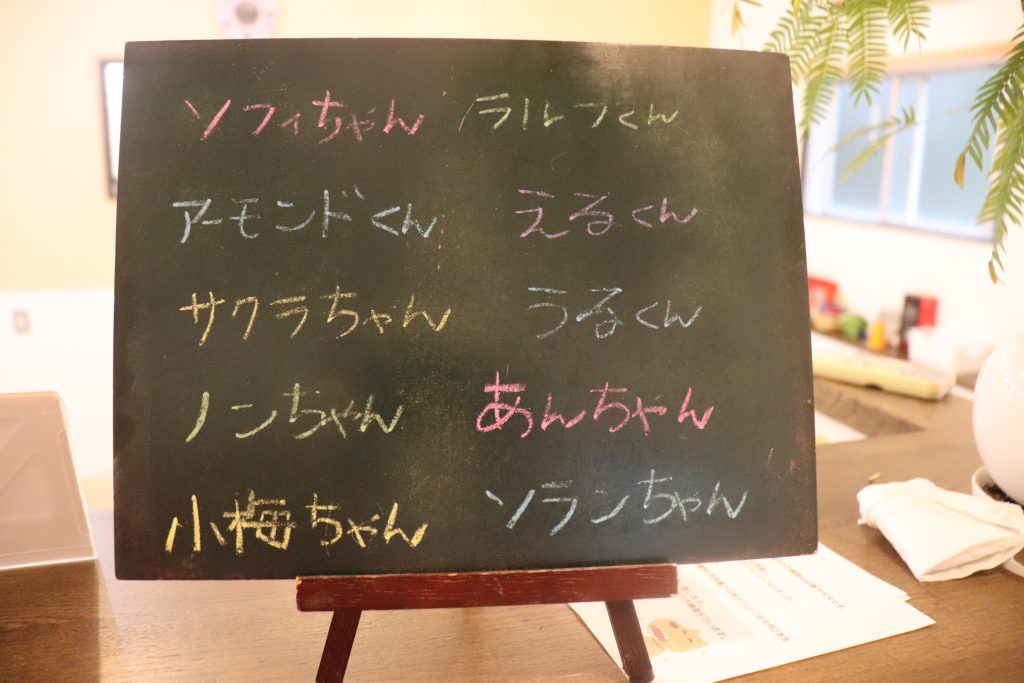 ソフィちゃん ラルフくん
アーモンドくん えるくん
サクラちゃん うるくん
ノンちゃん あんちゃん
小梅ちゃん ソランちゃん